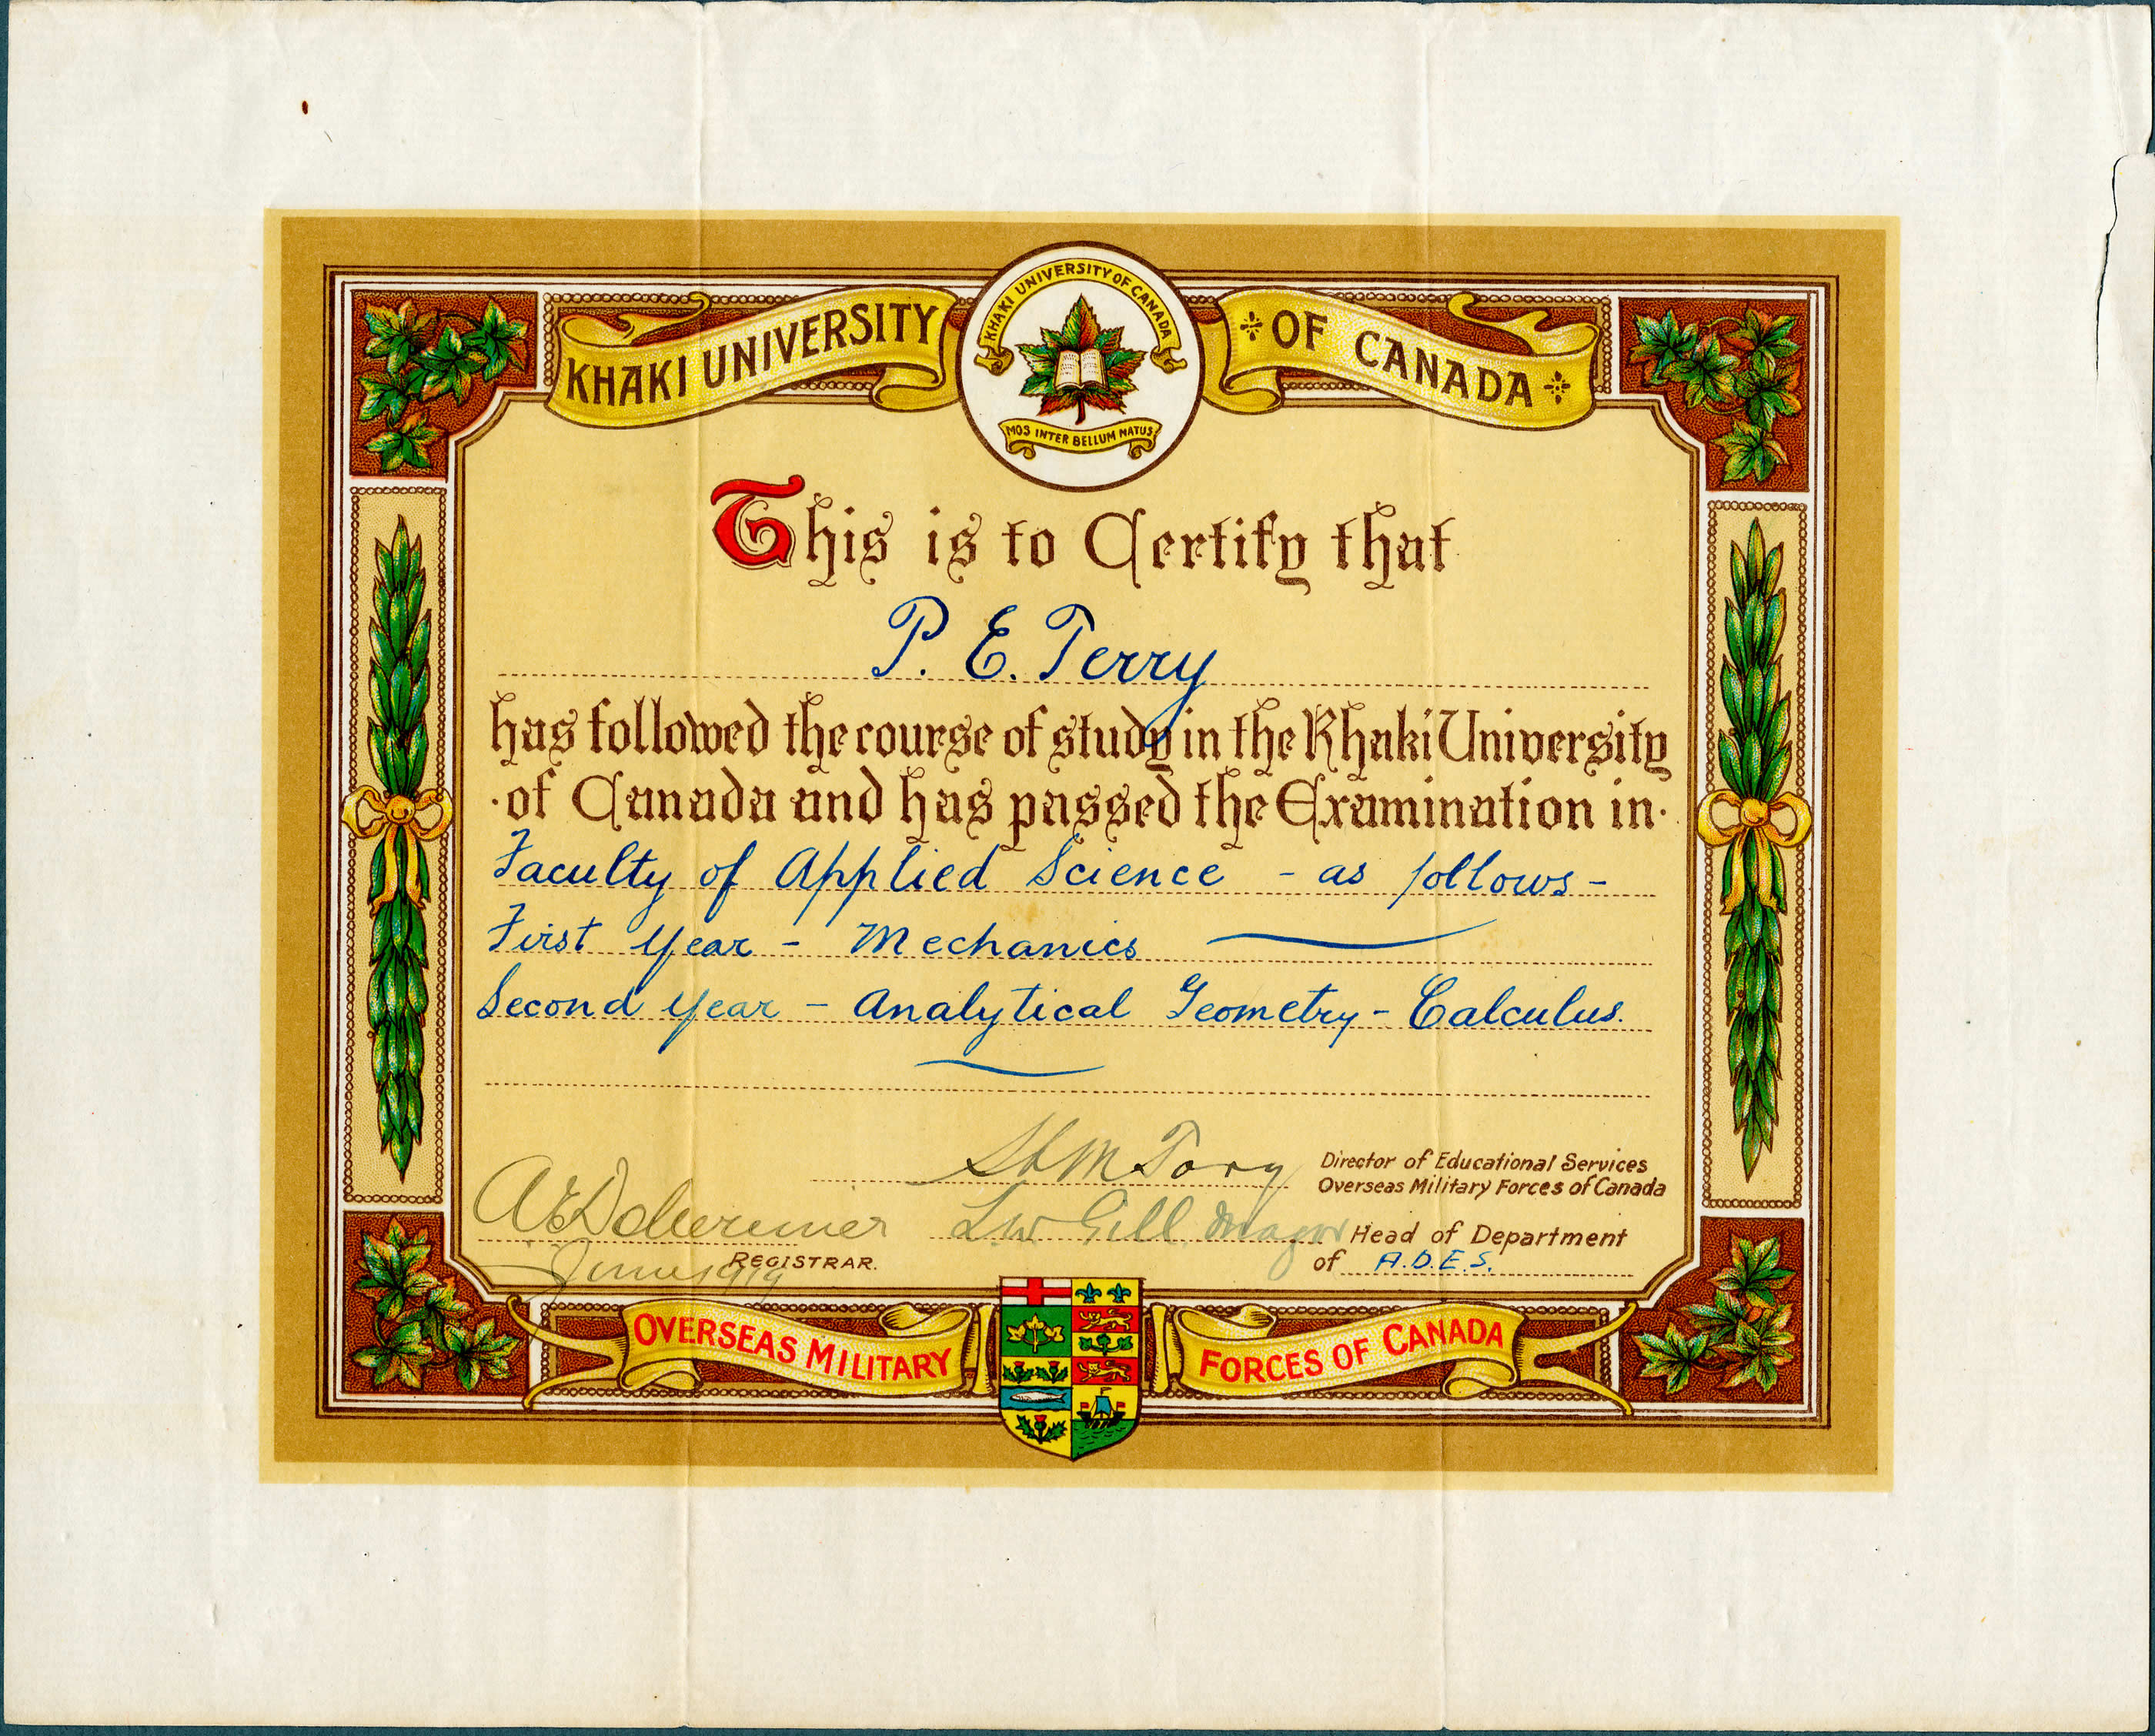 KHAKI UNIVERSITY OF CANADA
KHAKI UNIVERSITY OF CANADA
MOS INTER BELLUM NATUS
This is to Certify that
P. E. Terry
has followed the course of study in the Khaki University
of Canada and has passed the Examination in
Faculty of Applied Science - as follows -
First Year - Mechanics
Second Year - Analytical Geometry - Calculus.
HM Tory Director of Educational Services
Overseas Military Forces of Canada
L.W. Gill Major Head of Department
REGISTRAR. of A.D.E.S.
June 1919
OVERSEAS MILITARY FORCES OF CANADA